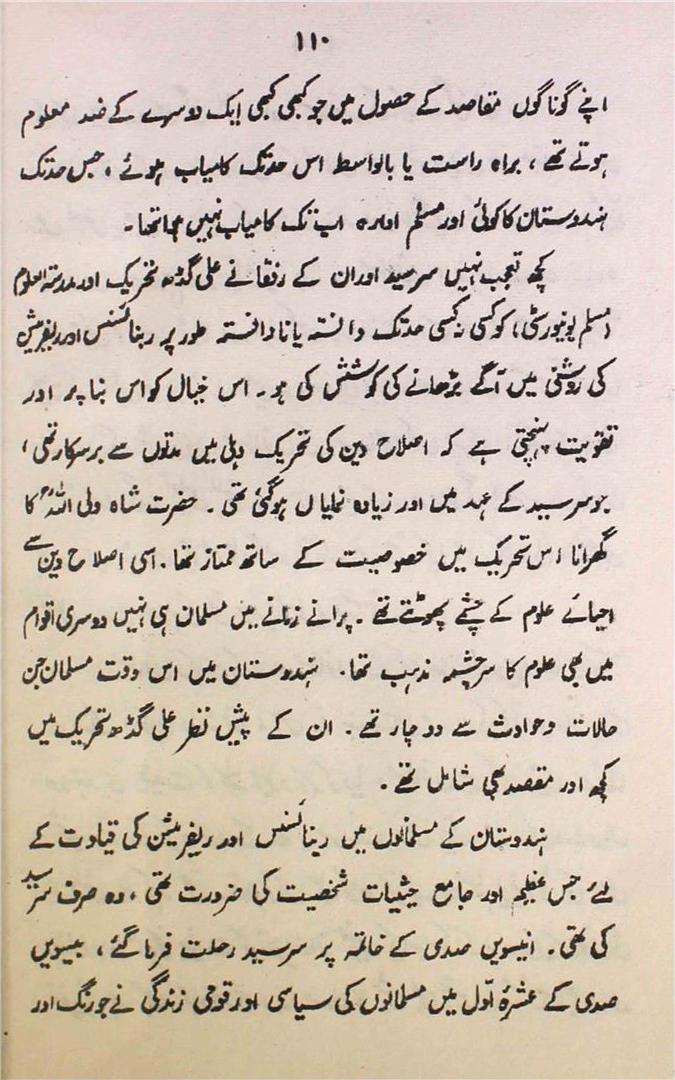 ۱۱۰
اپنے گوناگوں مقاصد کے حصول میں جو کبھی کبھی ایک دوسرے کے ضد معلوم
ہوتے تھے ، براہ راست یا بالواسطہ اس حد تک کامیاب ہوئے ، جس حد تک
ہندوستان کا کوئی اور مسلم ادارہ اب تک کامیاب نہیں ہوا تھا ۔
کچھ تعجب نہیں سرسید اور ان کے رفقا نے علی گڈھ تحریک اور مدرستہ العلوم
(مسلم یونیورسٹی) کو کسی نہ کسی حد تک دانستہ یا نادانستہ طور پر رینائسنس اور ریفرمیشن
کی روشنی میں آگے بڑھانے کی کوشش کی ہو ۔ اس خیال کو اس بنا پر اور
تقویت پہنچتی ہے کہ اصلاح دین کی تحریک دہلی میں مدتوں سے برسرکار تھی ،
جو سرسید کے عہد میں اور زیادہ نمایاں ہوگئی تھی ۔ حضرت شاہ ولی اللہؒ کا
گھرانا اس تحریک میں خصوصیت کے ساتھ ممتاز تھا ۔ اسی اصلاح دین سے
احیائے علوم کے چشمے پھوٹتے تھے ۔ پرانے زمانے میں مسلمان ہی نہیں دوسری اقوام
میں بھی علوم کا سرچشمہ مذہب تھا ۔ ہندوستان میں اس وقت مسلمان جن
حالات و حوادث سے دوچار تھے ۔ ان کے پیش نظر علی گڈھ تحریک میں
کچھ اور مقصد بھی شامل تھے ۔
ہندوستان کے مسلمانوں میں رینائسنس اور ریفرمیشن کی قیادت کے
لئے جس عظیم اور جامع حیثیات شخصیت کی ضرورت تھی ، وہ صرف سرسید
کی تھی ۔ انیسویں صدی کے خاتمہ پر سرسید رحلت فرما گئے ، بیسویں
صدی کے عشرۂ اوّل میں مسلمانوں کی سیاسی اور قومی زندگی نے جو رنگ اور